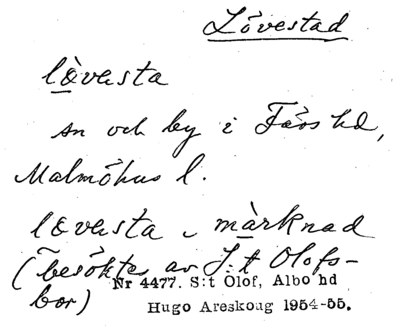 Lövestad
lòvesta
sn och by i Färs hd,
Malmöhus l.
lòvesta marknad
(besöktes av S:t Olofs-
bor)
Nr 4477. S:t Olof, Albo hd
Hugo Areskoug 1954-55.